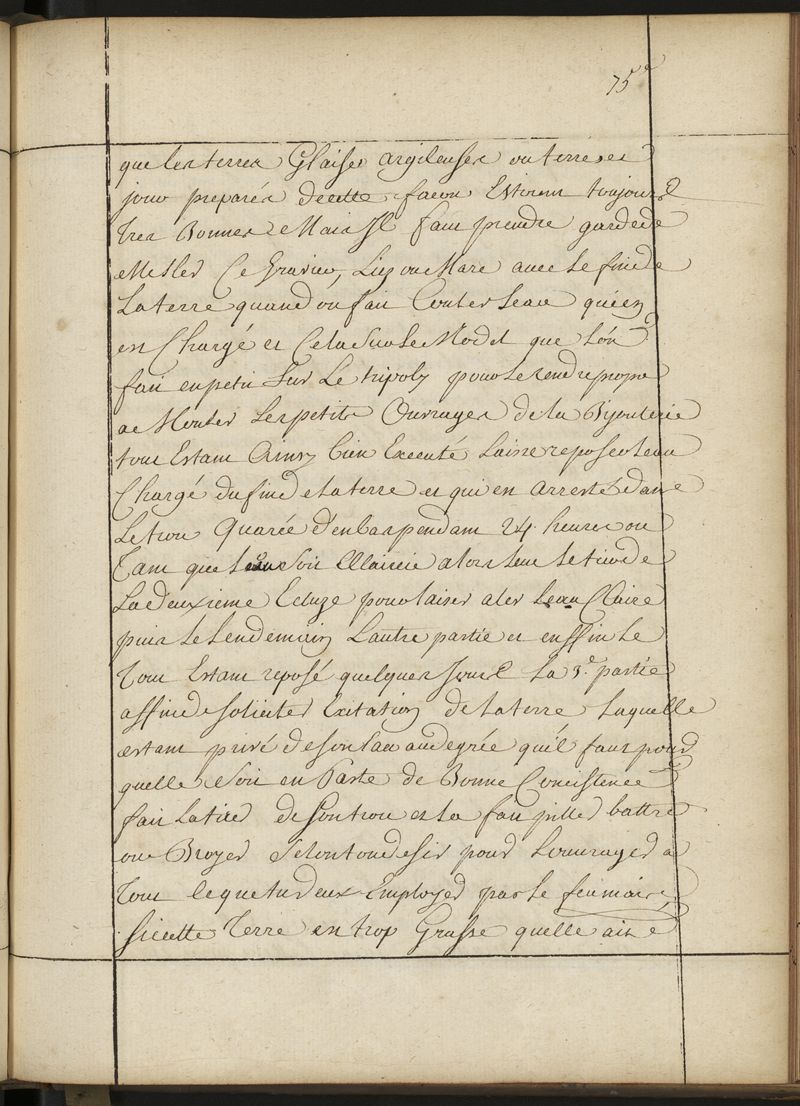 75
que les terres Glaises argileuses ou terres et
jour preparés de cette facon Estirent toujours
tres Bonnes Mais Jl faut prendre garde de
Mesler Ce Gravier, Lie ou Mare avec le fin de
La terre quand on fait Couler leau qui en
en Chargé et Cela Sur le Model que lón
fait en petit Sur Le tripoly pour le rendre propre
a Mouler les petits Ouvrages de la Bijouterie
tout Estant Ainsy bien Executé Laisse reposer leau
Chargé du fin de la terre et qui en arresté dans
Le trou Quarée d'en bas pendant 24. heures ou
Tant que leau Soit Claircie alors leve le tir de
La deuxieme Ecluze pour laiser aler leau Claire
puis le lendemain Lautre partie et enffin le
Tout Estant reposé quelques Jours La 3.e partie
affin de soliciter Exitation de la terre Laquelle
estant privé de son leau au degrée qu'il faut pour
quelle Soit en Paste de Bonne Concistence
fait La tirer de son trou et la fait piller battre
ou Broyer Selon ton desir pour Louvrage a
Tout le que tu deux Employer par le feu mais
si cette Terre en trop Grasse quelle aise